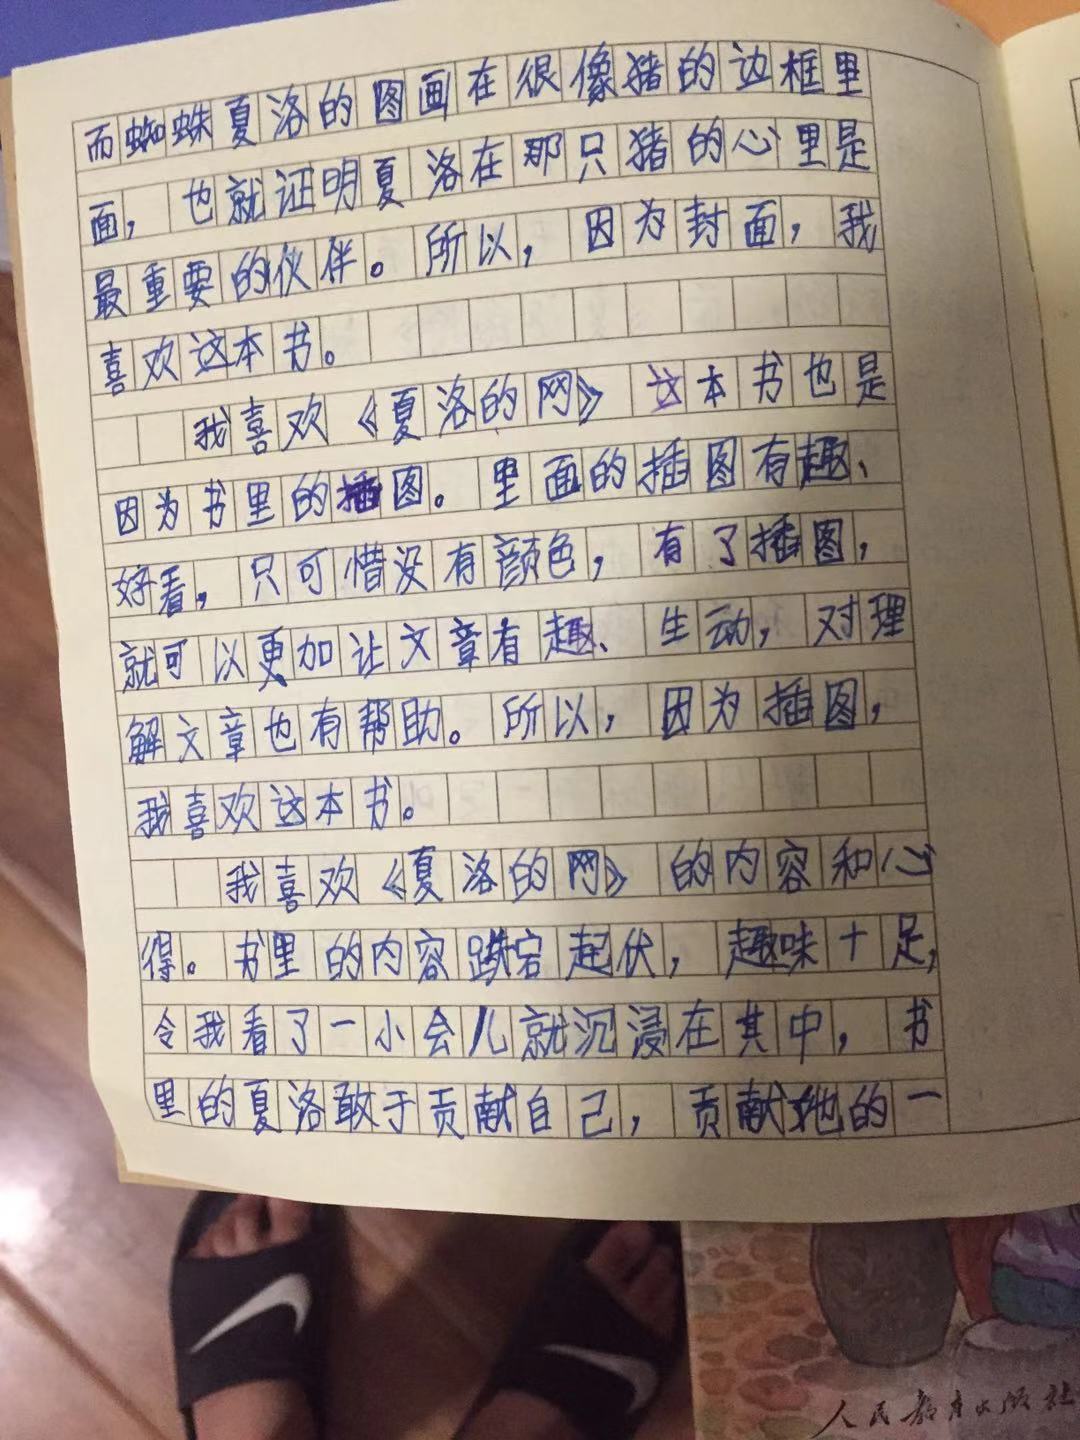 而蜘蛛夏洛的图画在很像猪的边框里
面，也就证明夏洛在那只猪的心里是
最重要的伙伴。所以，因为封面，我
喜欢这本书。
我喜欢《夏洛的网》这本书也是
因为书里的插图。里面的插图有趣、
好看，只可惜没有颜色，有了插图，
就可以更加让文章有趣、生动，对理
解文章也有帮助。所以，因为插图，
我喜欢这本书。
我喜欢《夏洛的网》的内容和心
得。书里的内容跌宕起伏，趣味十足，
令我看了一小会儿就沉浸在其中，书
里的夏洛敢于贡献自己，贡献她的一
人民教育出版社